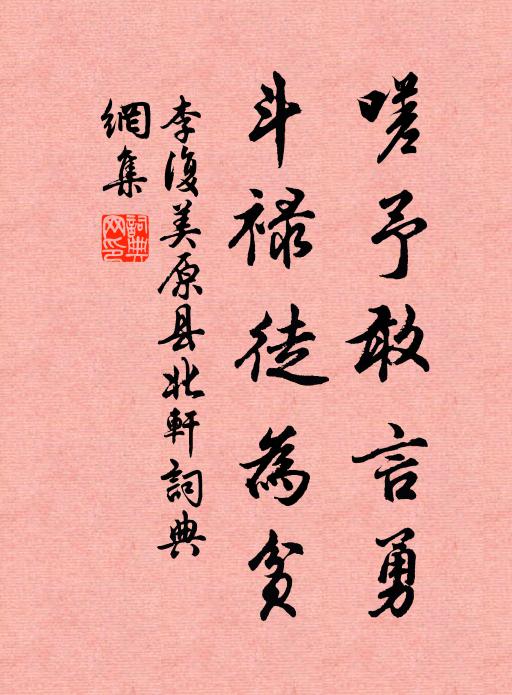 嗟予敢言勇
斗禄徒為貧
李復美原县北軒詞典
網集
詞典網印